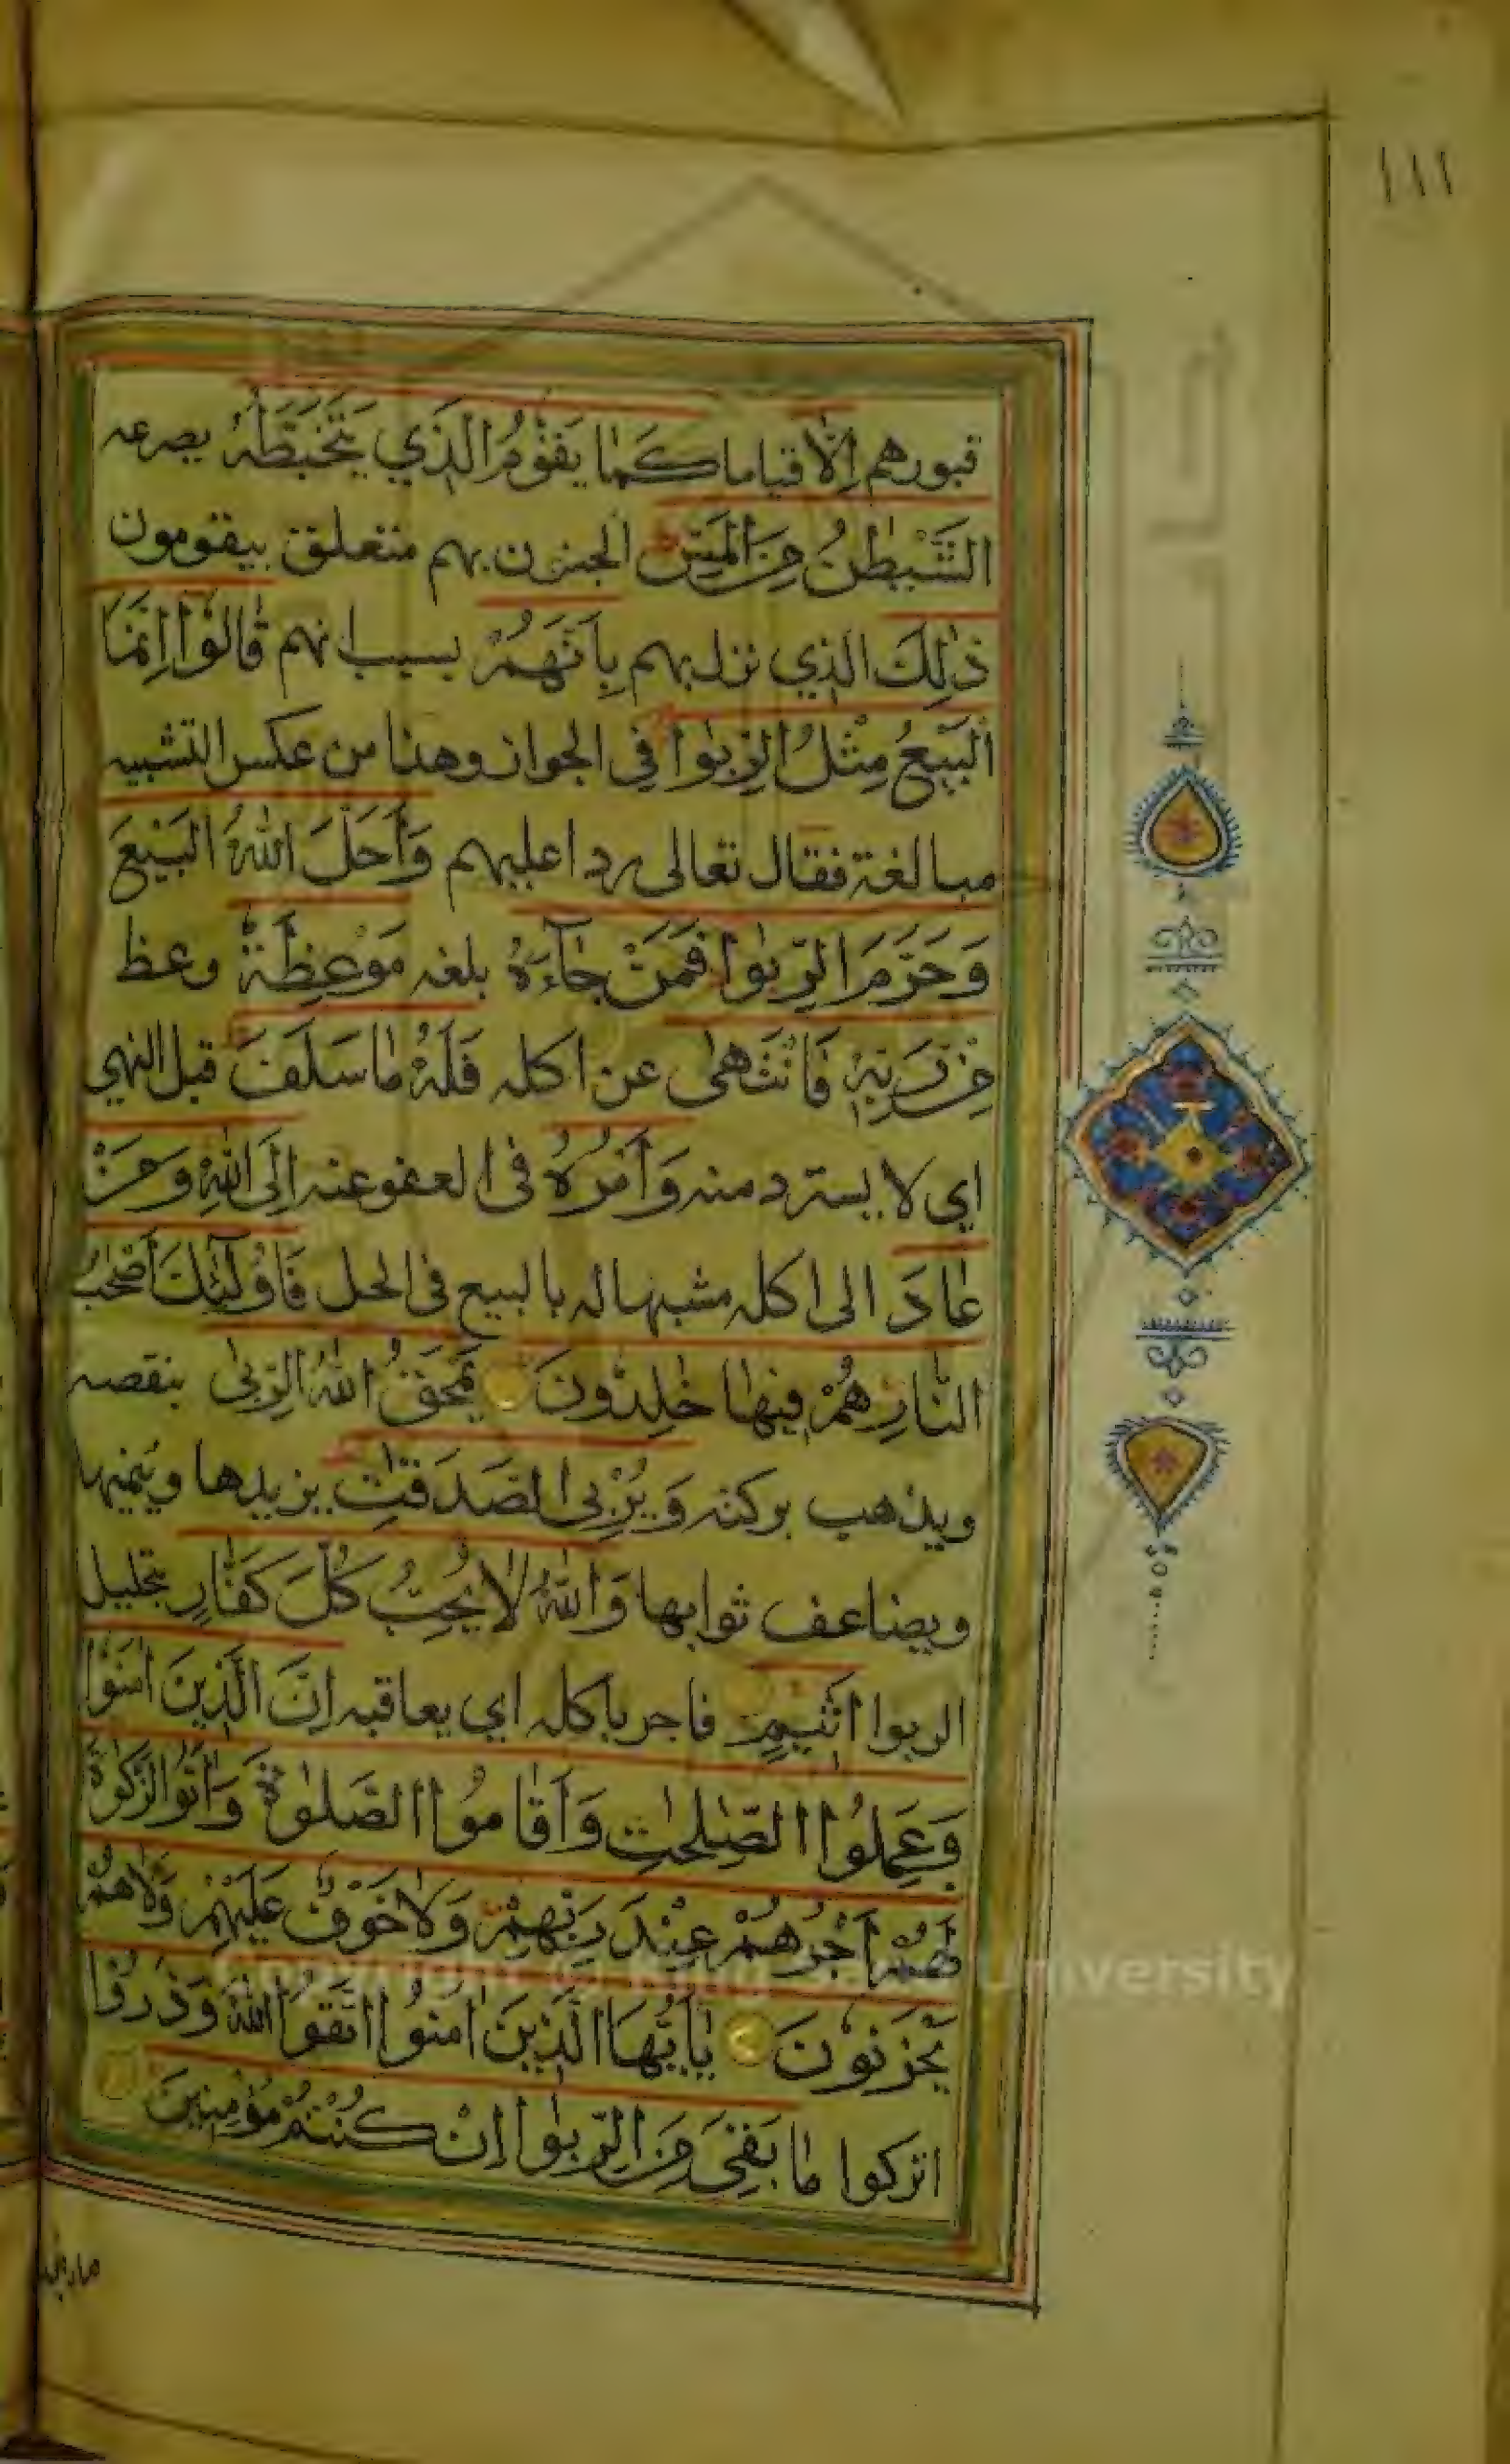 ١١١
قبورهم اِلَّا قياما كَمَا يَقُوْمُ الَّذِي يَتَخَبَّطُهُ يصرعه
الشَّيْطٰنُ مِنَ الْمَسِّ الجنون بهم متعلق بيقومون
ذٰلِكَ الذي نزل بهم بِاَنَّهُمْ بسبب انهم قَالُوْا اِنَّمَا
الْبَيْعُ مِثْلُ الرِّبٰوا في الجواز وهذا من عكس التشبيه
مبالغة فقال تعالى ردا عليهم وَاَحَلَّ اللّٰهُ الْبَيْعَ
وَحَرَّمَ الرِّبٰوا فَمَنْ جَآءَهُ بلغه مَوْعِظَةٌ وعظ
مِنْ رَبِّهٖ فَانْتَهٰى عن اكله فَلَهُ مَا سَلَفَ قبل النهي
اي لا يسترد منه وَاَمْرُهُ في العفو عنه اِلَى اللّٰهِ وَمَنْ
عَادَ الى اكله مشبها له بالبيع في الحل فَاُولٰٓئِكَ اَصْحٰبُ
النَّارِ هُمْ فِيْهَا خٰلِدُوْنَ يَمْحَقُ اللّٰهُ الرِّبٰى ينقصه
ويذهب بركته وَيُرْبِى الصَّدَقٰتِ يزيدها وينميها
ويضاعف ثوابها وَاللّٰهُ لَا يُحِبُّ كُلَّ كَفَّارٍ بتحليل
الربوا اَثِيْمٍ فاجر باكله اي يعاقبه اِنَّ الَّذِيْنَ اٰمَنُوْا
وَعَمِلُوا الصّٰلِحٰتِ وَاَقَامُوا الصَّلٰوةَ وَاٰتَوُا الزَّكٰوةَ
لَهُمْ اَجْرُهُمْ عِنْدَ رَبِّهِمْ وَلَا خَوْفٌ عَلَيْهِمْ وَلَا هُمْ
يَحْزَنُوْنَ يٰٓاَيُّهَا الَّذِيْنَ اٰمَنُوا اتَّقُوا اللّٰهَ وَذَرُوْا
اتركوا مَا بَقِيَ مِنَ الرِّبٰوا اِنْ كُنْتُمْ مُؤْمِنِيْنَ
University